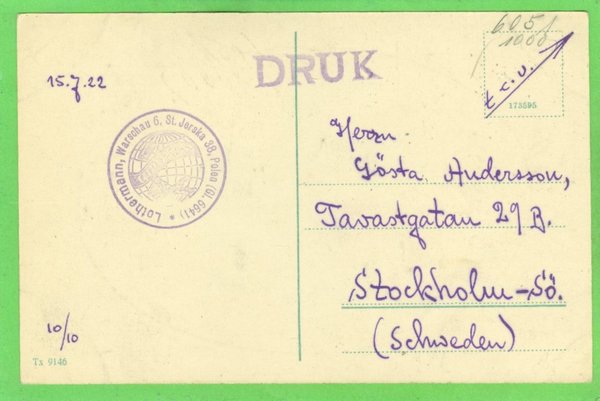 6051
1000
15.7.22
DRUK
t.c.v.
173595
Lothermann, Warschau 6, St. Jerska 38, Polen (Gl. 6641) *
Herrn
Gösta Andersson,
Tavastgatan 29 B.
Stockholm-Sö.
(Schweden)
10/10
Tx 9146